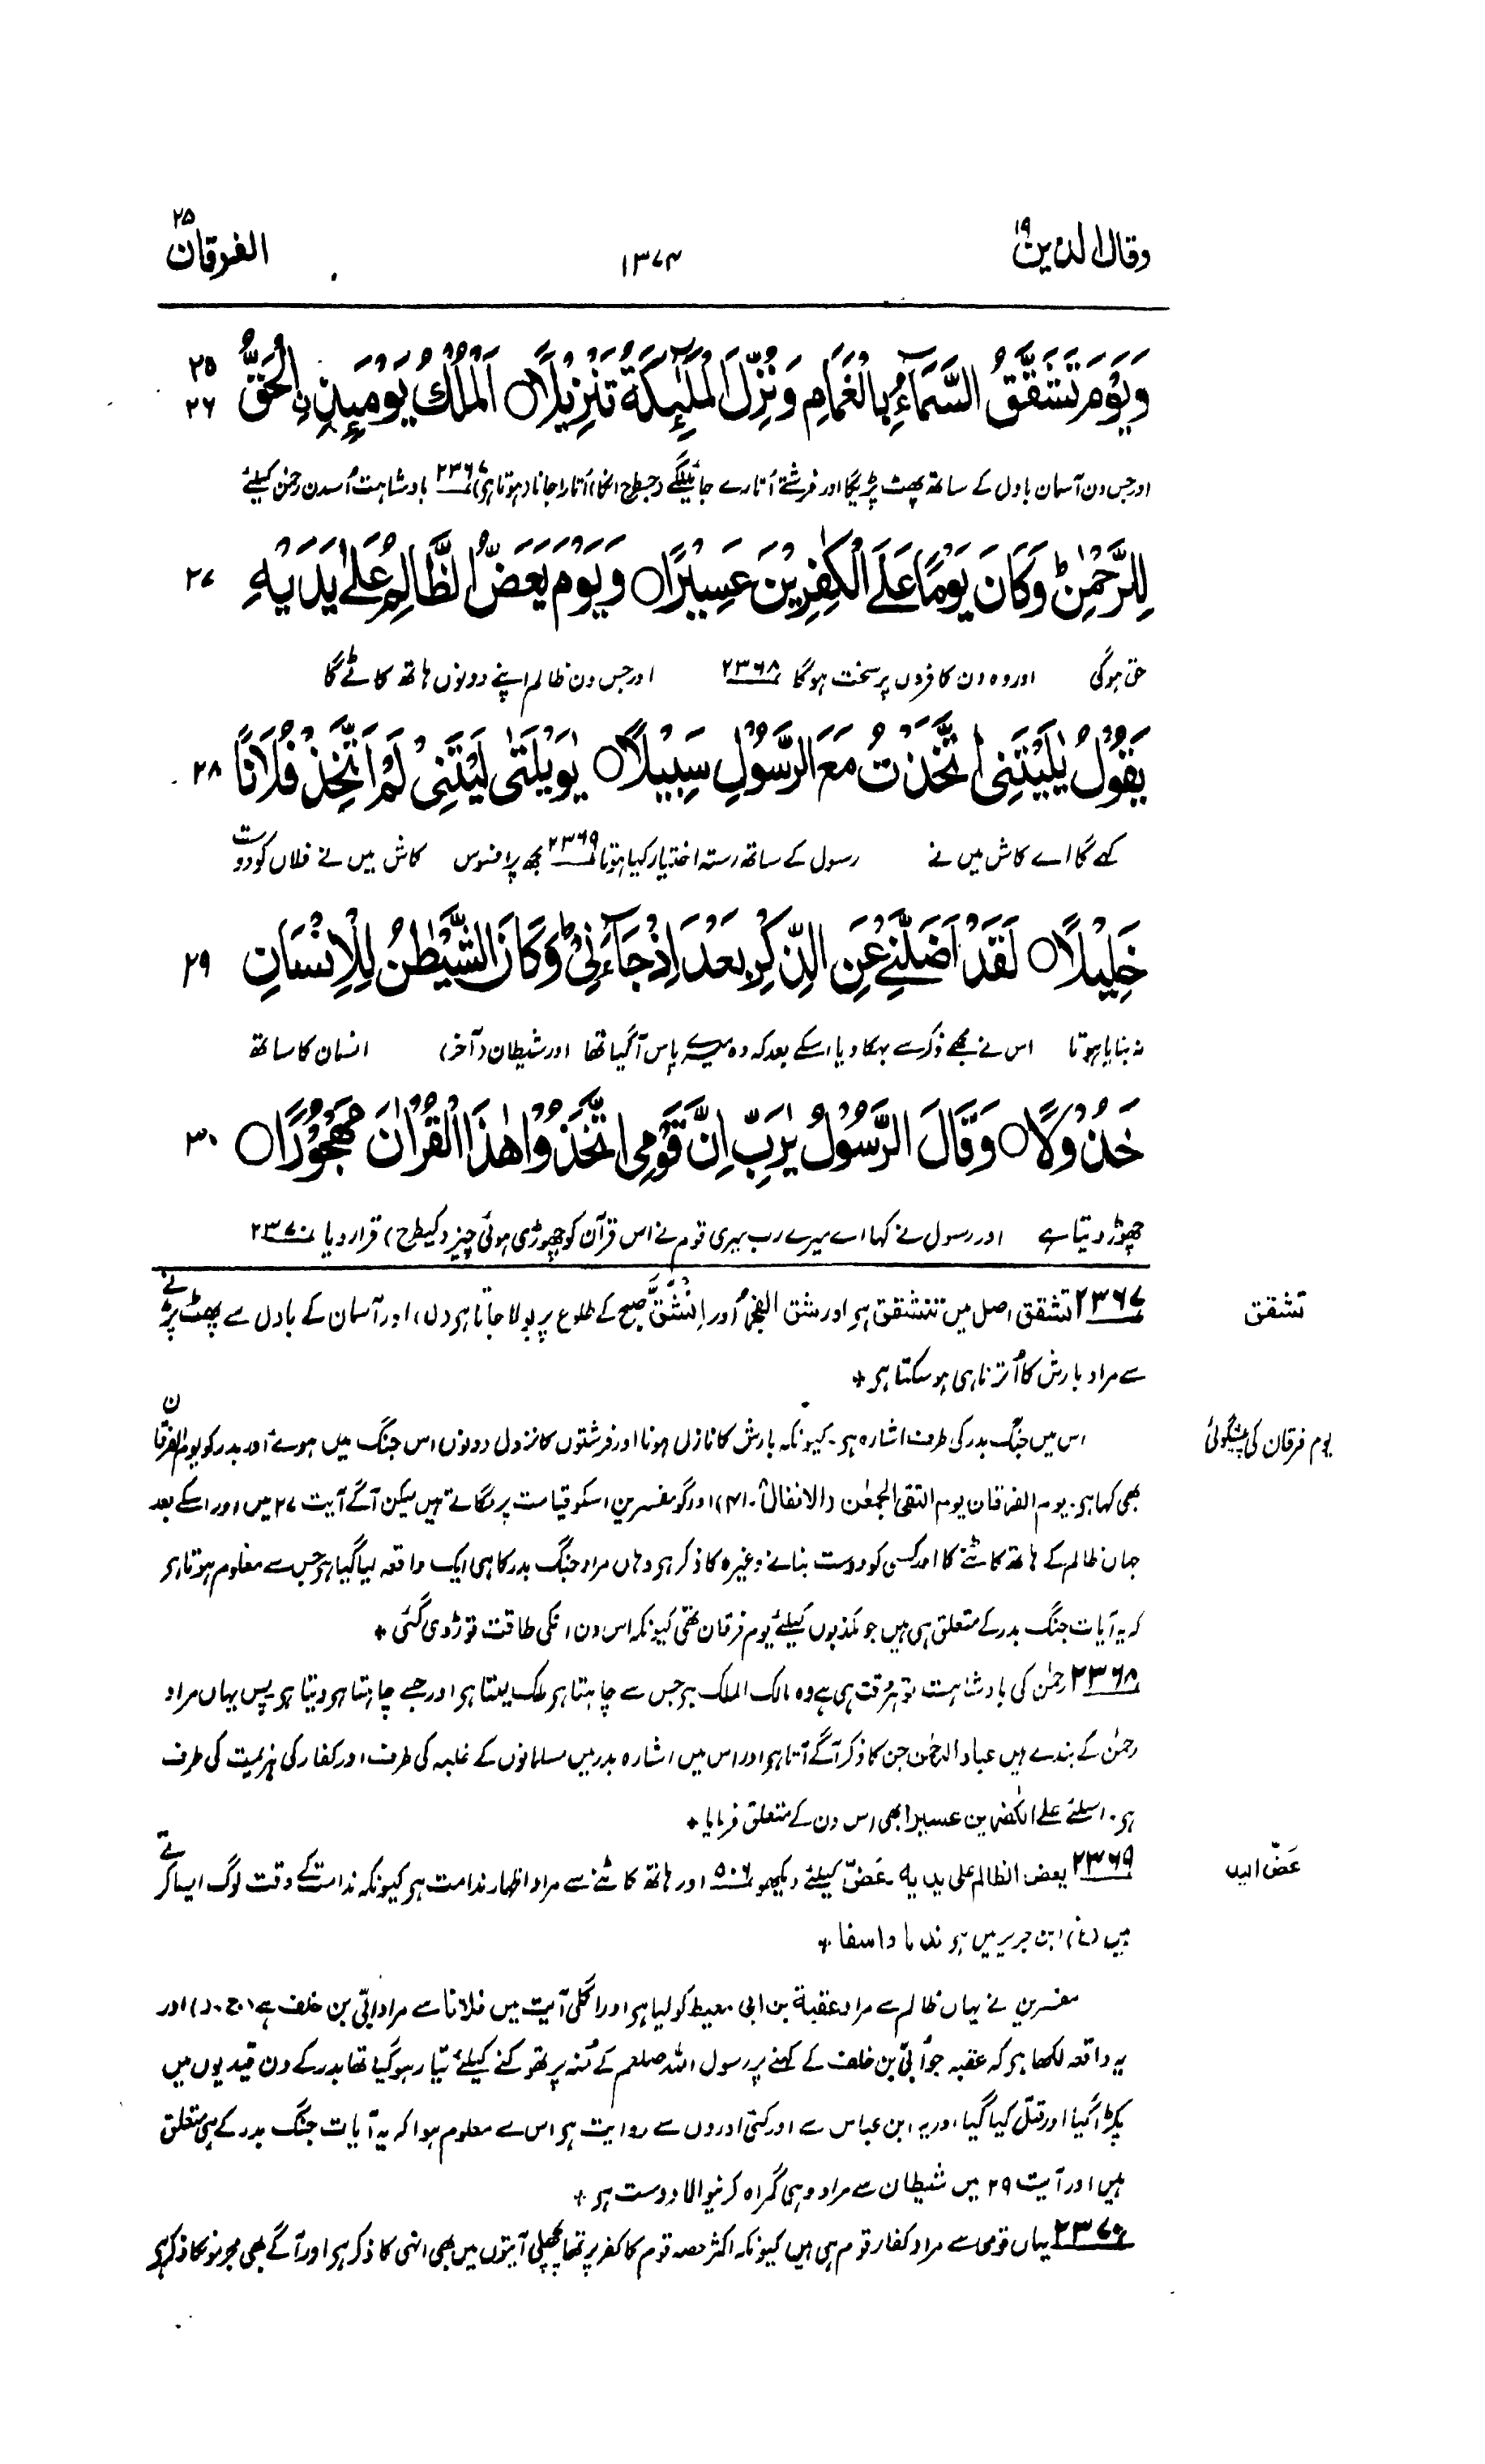 وقال الذین ۱۹
۱۳۷۴
الفرقان ۲۵
وَيَوْمَ تَشَقَّقُ السَّمَآءُ بِالْغَمَامِ وَنُزِّلَ الْمَلٰٓئِكَةُ تَنْزِيْلًا○ اَلْمُلْكُ يَوْمَئِذِ نِ الْحَقُّ ۲۵ ۲۶
اور جس دن آسمان بادل کے ساتھ پھٹ پڑیگا اور فرشتے اُتارے جائیںگے (جسطرح انکا) اُتارا جانا (ہوتا ہی) ۲۳۶۷ بادشاہت اُسدن رحمٰن کیلئے
لِلرَّحْمٰنِ ؕ وَكَانَ يَوْمًا عَلَى الْكٰفِرِيْنَ عَسِيْرًا○ وَيَوْمَ يَعَضُّ الظَّالِمُ عَلٰى يَدَيْهِ ۲۷
حق ہوگی اور وہ دن کافروں پر سخت ہوگا ۲۳۶۸ اور جس دن ظالم اپنے دونوں ہاتھ کاٹے گا
يَقُوْلُ يٰلَيْتَنِى اتَّخَذْتُ مَعَ الرَّسُوْلِ سَبِيْلًا○ يٰوَيْلَتٰى لَيْتَنِىْ لَمْ اَتَّخِذْ فُلَانًا ۲۸
کہے گا اے کاش میں نے رسول کے ساتھ رستہ اختیار کیا ہوتا ۲۳۶۹ مجھ پر افسوس کاش میں نے فلاں کو دوست
خَلِيْلًا○ لَقَدْ اَضَلَّنِىْ عَنِ الذِّكْرِ بَعْدَ اِذْ جَآءَنِىْ ؕ وَكَانَ الشَّيْطٰنُ لِلْاِنْسَانِ ۲۹
نہ بنایا ہوتا اس نے مجھے ذکر سے بہکا دیا اسکے بعد کہ وہ میرے پاس آگیا تھا اور شیطان (آخر) انسان کا ساتھ
خَذُوْلًا○ وَقَالَ الرَّسُوْلُ يٰرَبِّ اِنَّ قَوْمِى اتَّخَذُوْا هٰذَا الْقُرْاٰنَ مَهْجُوْرًا○ ۳۰
چھوڑ دیتا ہے اور رسول نے کہا اے میرے رب میری قوم نے اس قرآن کو چھوڑی ہوئی چیز (کیطرح) قرار دیا ۲۳۷۰
تشقق
۲۳۶۷ تشقق اصل میں تتشقق ہو اور شق الفجرُ اور اِنْشَقَّ صبح کے طلوع پر بولا جاتا ہو (ل) اور آسمان کے بادل سے پھٹ پڑنے
سے مراد بارش کا اُترنا ہی ہوسکتا ہو *
یوم فرقان کی پیشگوئی
اس میں جنگ بدر کی طرف اشارہ ہو۔ کیونکہ بارش کا نازل ہونا اور فرشتوں کا نزول دونوں اس جنگ میں ہوئے اور بدر کو یوم الفرقان
بھی کہا ہو۔ یوم الفرقان یوم التقی الجمعٰن (الانفال ۔۴۱) اور گو مفسرین اسکو قیامت پر لگاتے ہیں لیکن آگے آیت ۲۷ میں اور اسکے بعد
جہاں ظالم کے ہاتھ کاٹنے کا اور کسی کو دوست بنانے وغیرہ کا ذکر ہو وہاں مراد جنگ بدر کا ہی ایک واقعہ لیا گیا ہو جس سے معلوم ہوتا ہو
کہ یہ آیات جنگ بدر کے متعلق ہی ہیں جو مکذبوں کیلئے یوم فرقان تھی کیونکہ اس دن انکی طاقت توڑ دی گئی *
۲۳۶۸ رحمٰن کی بادشاہت تو ہر وقت ہی ہے وہ مالک الملک ہو جس سے چاہتا ہو ملک لیتا ہو اور جسے چاہتا ہو دیتا ہو پس یہاں مراد
رحمٰن کے بندے ہیں عباد الرحمٰن جن کا ذکر آگے آتا ہو اور اس میں اشارہ بدر میں مسلمانوں کے غلبہ کی طرف اور کفار کی ہزیمت کی طرف
ہو۔ اسلئے علی الکٰفرین عسیرا بھی اس دن کے متعلق فرمایا *
عَضّ الید
۲۳۶۹ یعض الظالم علی یدیہ۔ عَضّ کیلئے دیکھو ۵۰۶ اور ہاتھ کاٹنے سے مراد اظہار ندامت ہو کیونکہ ندامت کے وقت لوگ ایسا کرتے
ہیں (غ) ابن جریر میں ہو ندما واسفا *
مفسرین نے یہاں ظالم سے مراد عقبۃ بن ابی معیط کو لیا ہو اور اگلی آیت میں فلانا سے مراد ابیّ بن خلف ہے (ج۔ر) اور
یہ واقعہ لکھا ہو کہ عقبہ جو اُبیّ بن خلف کے کہنے پر رسول اللہ صلعم کے مُنہ پر تھوکنے کیلئے تیار ہوگیا تھا بدر کے دن قیدیوں میں
پکڑا گیا اور قتل کیا گیا اور یہ ابن عباس سے اور کئی اوروں سے روایت ہو اس سے معلوم ہوا کہ یہ آیات جنگ بدر کے ہی متعلق
ہیں اور آیت ۲۹ میں شیطان سے مراد وہی گمراہ کرنیوالا دوست ہو *
۲۳۷۰ یہاں قومی سے مراد کفار قوم ہی ہیں کیونکہ اکثر حصہ قوم کا کفر پر تھا پچھلی آیتوں میں بھی انہی کا ذکر ہو اور آگے بھی مجرموں کا ذکر ہو